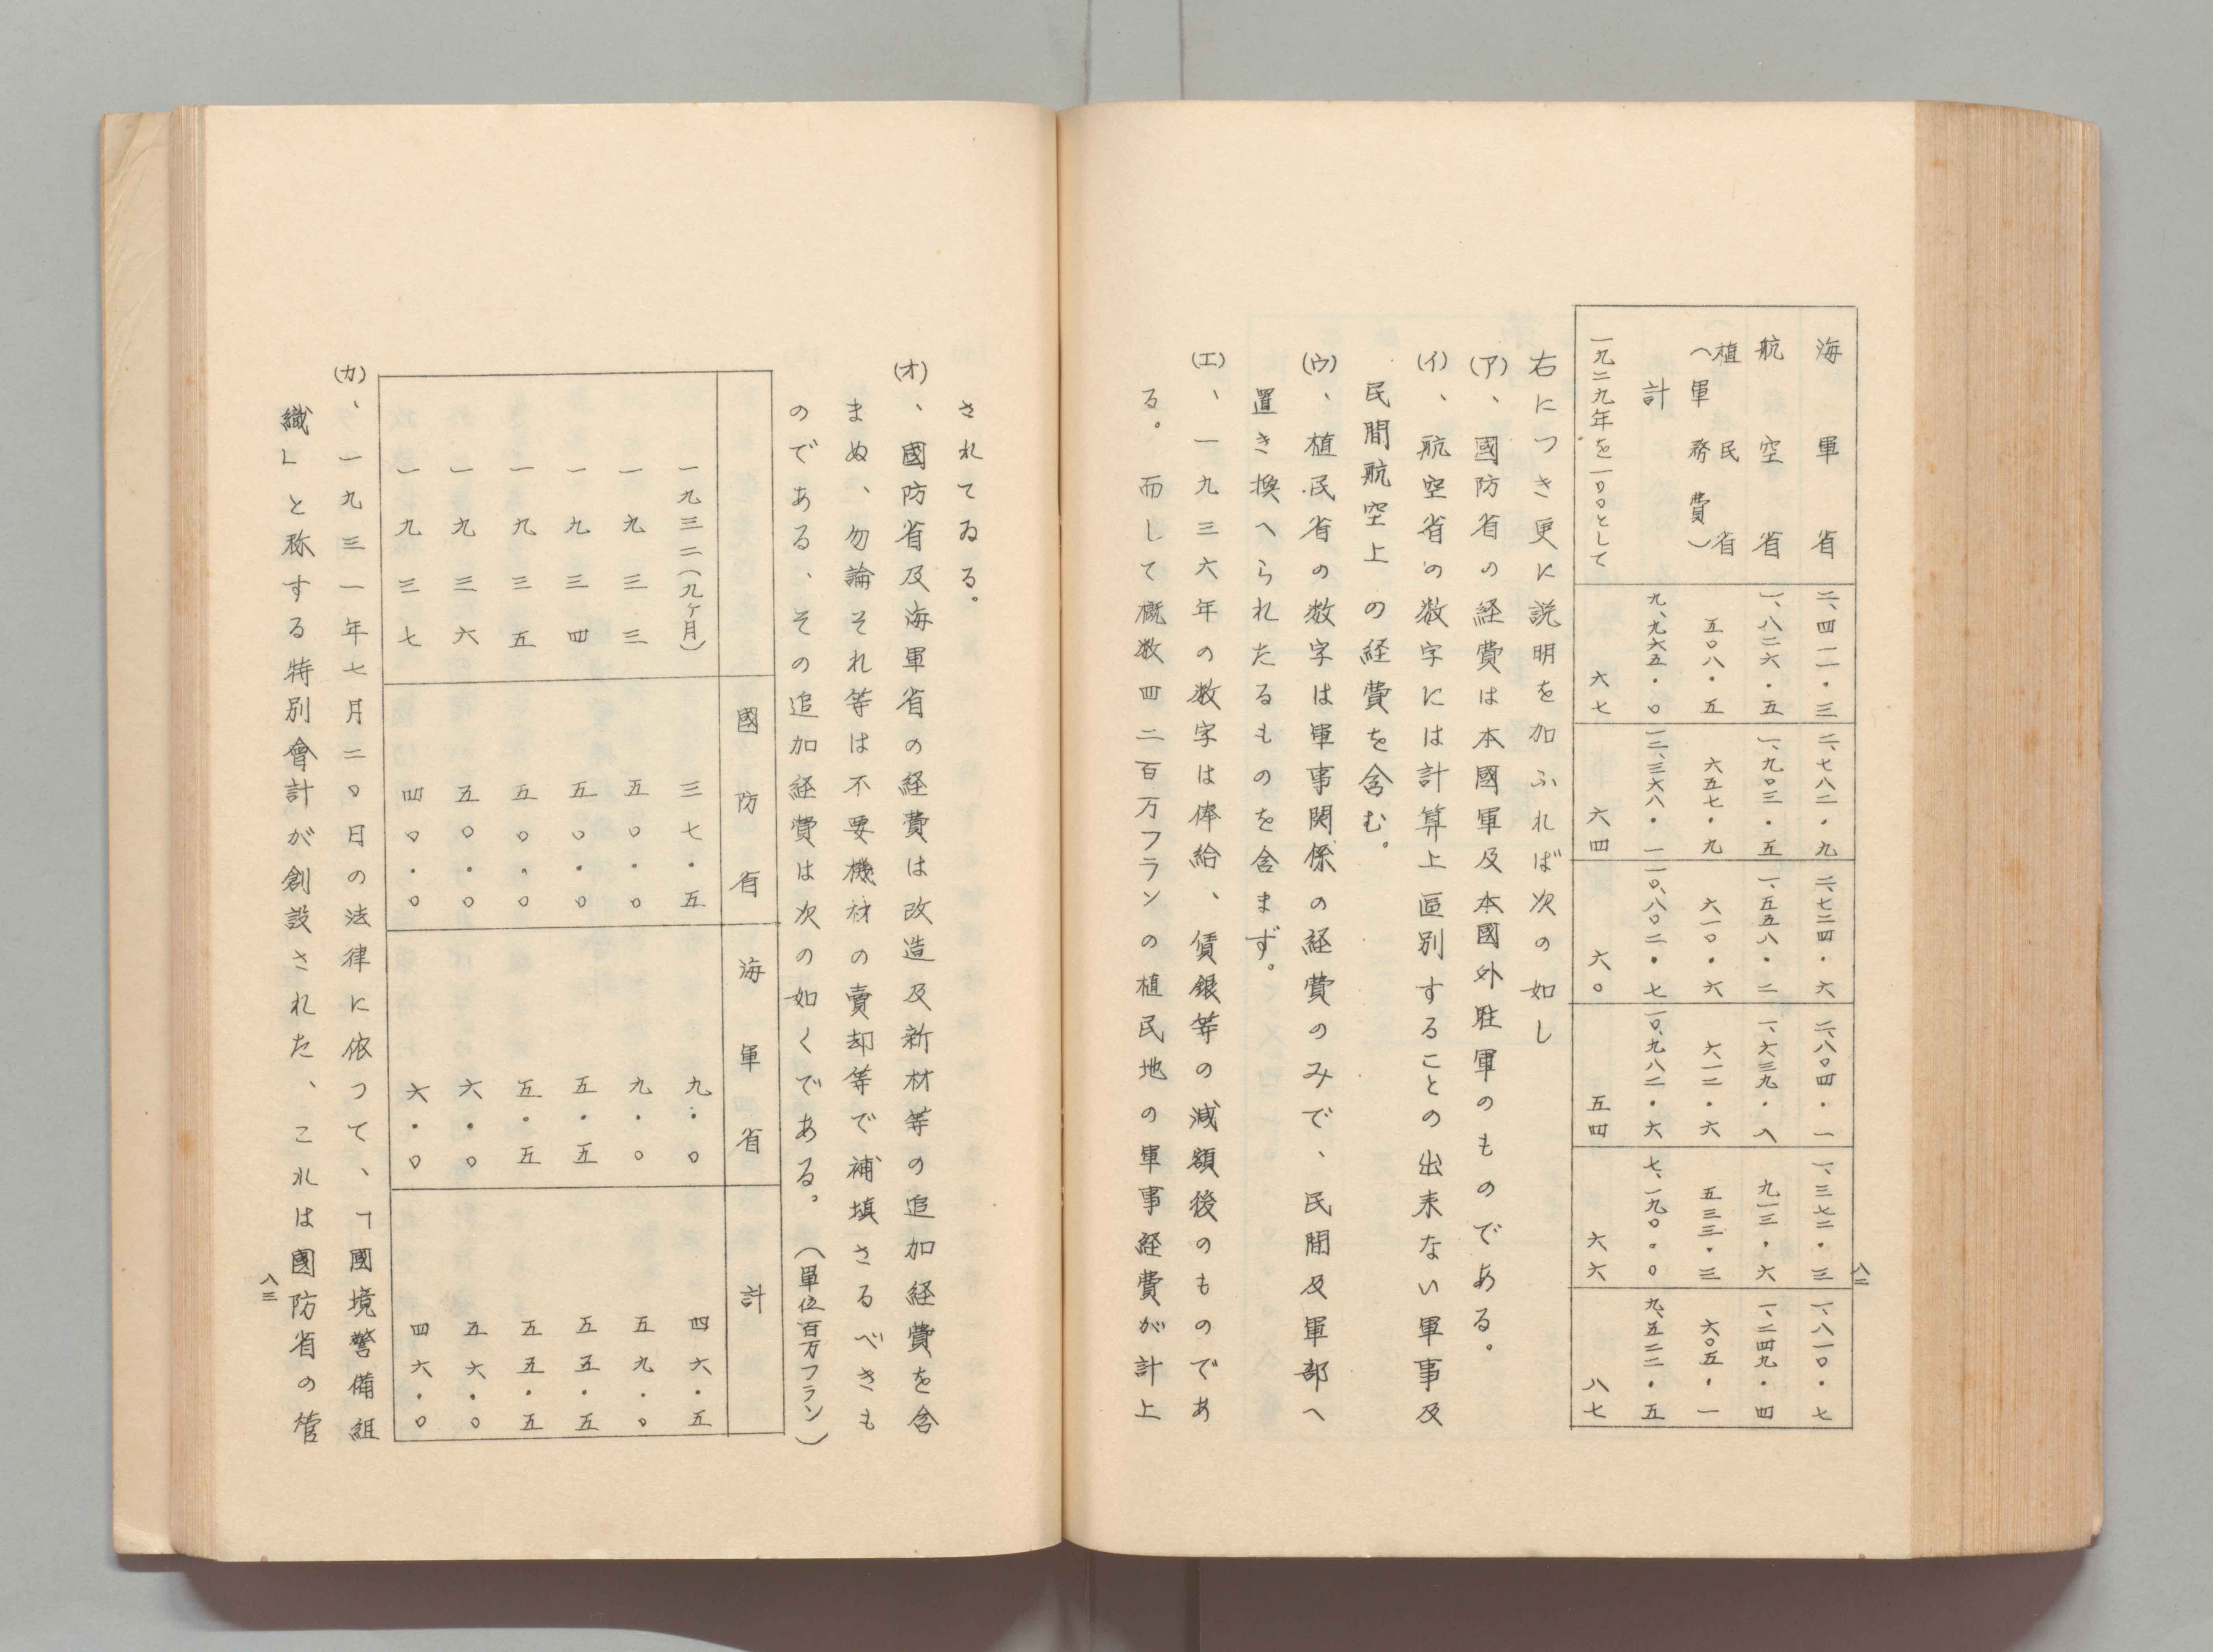 八二
海軍省 二、四一一・三 二、七八二・九 二、七二四・六 二、八〇四・一 一、三七二・三 一、八一〇・七
航空省 一、八二六・五 一、九〇三・五 一、五五八・二 一、六三九・八 九一三・六 一、二四九・四
植民省
(軍務費) 五〇八・五 六五七・九 六一〇・六 六一二・六 五三三・三 六〇五・一
計 九、九六五・〇 一二、三六八・一 一〇、八〇二・七 一〇、九八二・六 七、一九〇・〇 九、五二二・五
一九二九年を一〇〇として 六七 六四 六〇 五四 六六 八七
右につき更に説明を加ふれば次の如し
(ア)、國防省の経費は本國軍及本國外駐軍のものである。
(イ)、航空省の数字には計算上區別することの出来ない軍事及
民間航空上の経費を含む。
(ウ)、植民省の数字は軍事関係の経費のみで、民間及軍部へ
置き換へられたるものを含まず。
(エ)、一九三六年の数字は俸給、賃銀等の減額後のものであ
る。而して概数四二百万フランの植民地の軍事経費が計上
されてゐる。
(オ)、國防省及海軍省の経費は改造及新材等の追加経費を含
まぬ、勿論それ等は不要機材の賣却等で補填さるべきも
のである、その追加経費は次の如くである。(單位百万フラン)
國防省 海軍省 計
一九三二(九ヶ月) 三七・五 九・〇 四六・五
一九三三 五〇・〇 九・〇 五九・〇
一九三四 五〇・〇 五・五 五五・五
一九三五 五〇・〇 五・五 五五・五
一九三六 五〇・〇 六・〇 五六・〇
一九三七 四〇・〇 六・〇 四六・〇
(カ)、一九三一年七月二〇日の法律に依つて、「國境警備組
織」と称する特別會計が創設された、これは國防省の管
八三